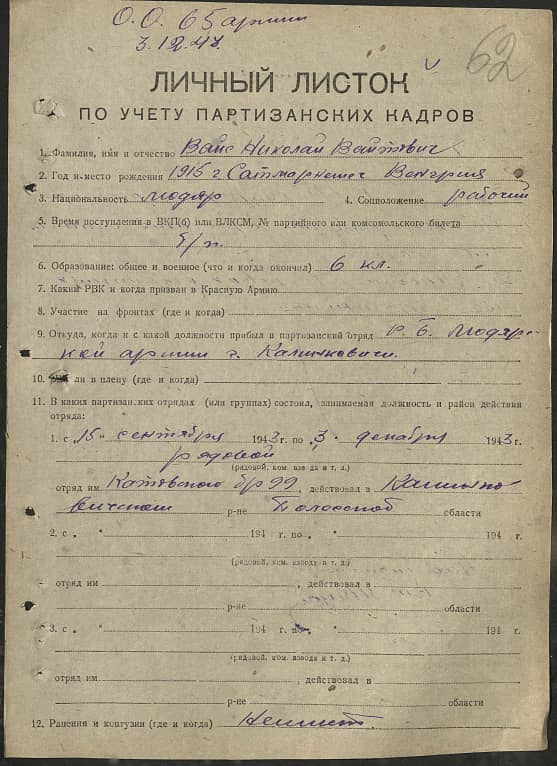 О.О. 65 армии
3.12.43
62
ЛИЧНЫЙ ЛИСТОК
ПО УЧЕТУ ПАРТИЗАНСКИХ КАДРОВ
1. Фамилия, имя и отчество Вайс Николай
2. Год и место рождения 1915 г. Венгрия
3. Национальность мадяр 4. Соцположение рабочий
5. Время поступления в ВКП(б) или ВЛКСМ, № партийного или комсомольского билета
б/п.
6. Образование: общее и военное (что и когда окончил) 6 кл.
7. Каким РВК и когда призван в Красную Армию
8. Участие на фронтах (где и когда)
9. Откуда, когда и с какой должности прибыл в партизанский отряд Р. Б. Мадярс-
кой армии г. Калинковичи.
10. ли в плену (где и когда)
11. В каких партизанских отрядах (или группах) состоял, занимаемая должность и район действия
отряда:
1. с „15" сентября 1943 г. по „3" декабря 1943 г.
рядовой
(рядовой, ком. взвода и т. д.)
отряд им. Котовского бр 99, действовал в Калинко
вичском р-не Полесской области
2. с „ " 194 г. по „ " 194 г.
(рядовой, ком. взвода и т. д.)
отряд им , действовал в
р-не области
3. с „ " 194 г. по „ " 194 г.
(рядовой, ком. взвода и т. д.)
отряд им , действовал в
р-не области
12. Ранения и контузии (где и когда)